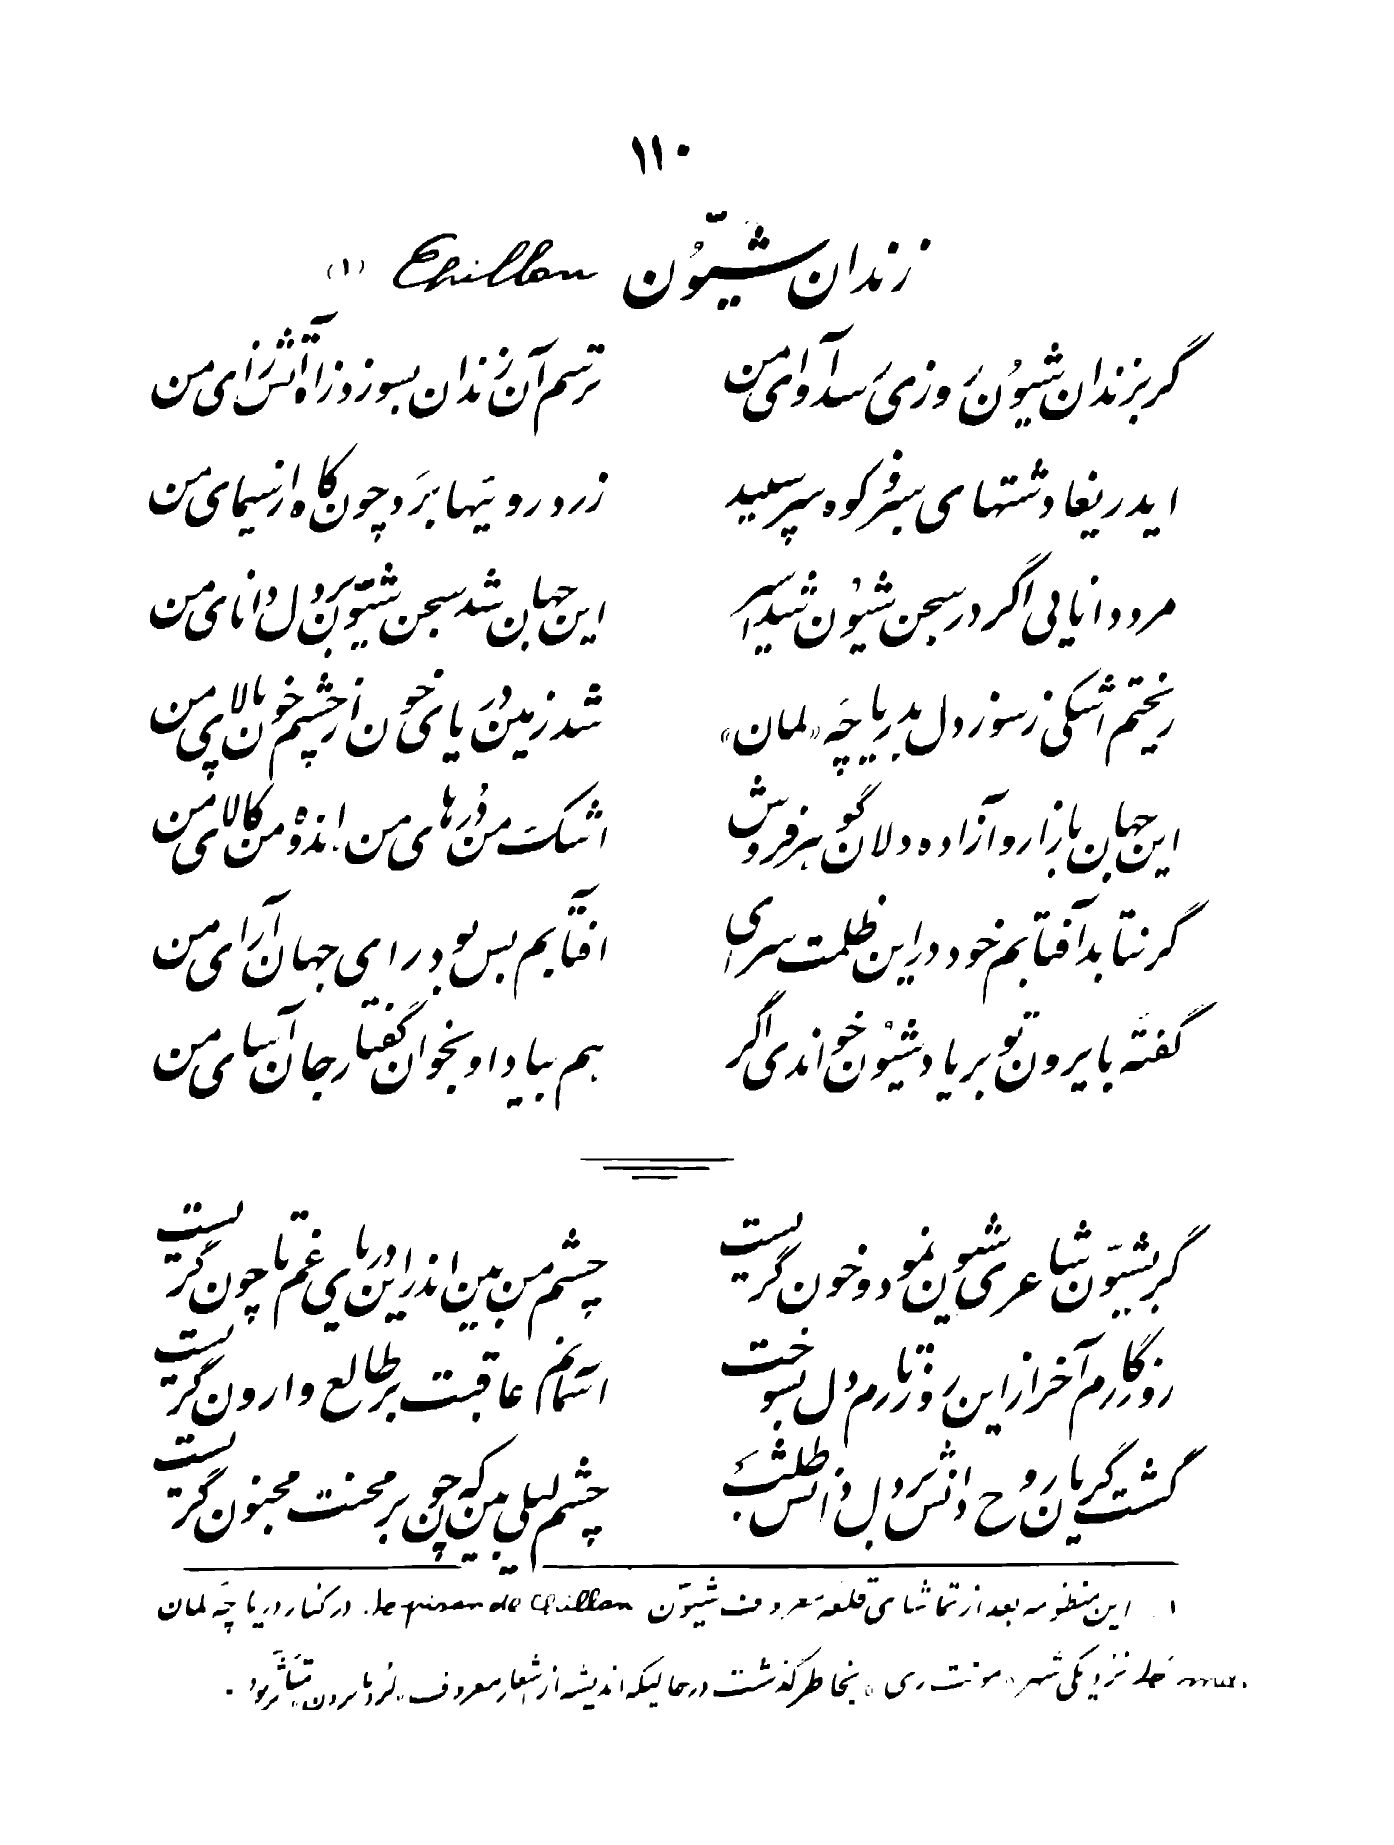 ۱۱۰
زندان شیّون Chillon (۱)
گر بزندان شیون روزی رسد آوای من    ترسم آن زندان بسوزد ز آه آتش زای من
ایدریغا دشتهای سبز و کوه سر سپید    زرد روئیها برد چون کاه از سیمای من
مرد دانایی اگر در سجن شیون شد اسیر    این جهان شد سجن شیّون بر دل دانای من
ریختم اشکی ز سوز دل بدریاچه «لمان»    شد زمین دریای خون از چشم خون پالای من
این جهان بازار و آزاده دلان گوهر فروش    اشک من درهای من اندوه من کالای من
گر نتابد آفتابم خود در این ظلمت سرای    آفتابم بس بود رای جهان آرای من
گفته بایرون تو بر یاد شیون خواندی اگر    هم بیاد او بخوان گفتار جان آسای من
گر بشیّون شاعری شیون نمود و خون گریست    چشم من بین اندر این دریای غم تا چون گریست
روزگارم آخر از این روز تارم دل بسوخت    آسمانم عاقبت بر طالع وارون گریست
گشت گریان روح دانش بر دل دانش طلب    چشم لیلی بین که چون بر محنت مجنون گریست
۱. این منظومه بعد از تماشای قلعه معروف شیّون le prison de Chillon. در کنار دریاچه لمان
نزدیکی شهر «مونت ری» بخاطر گذشت در حالیکه اندیشه از اشعار معروف «لرد بایرون» متأثر بود.